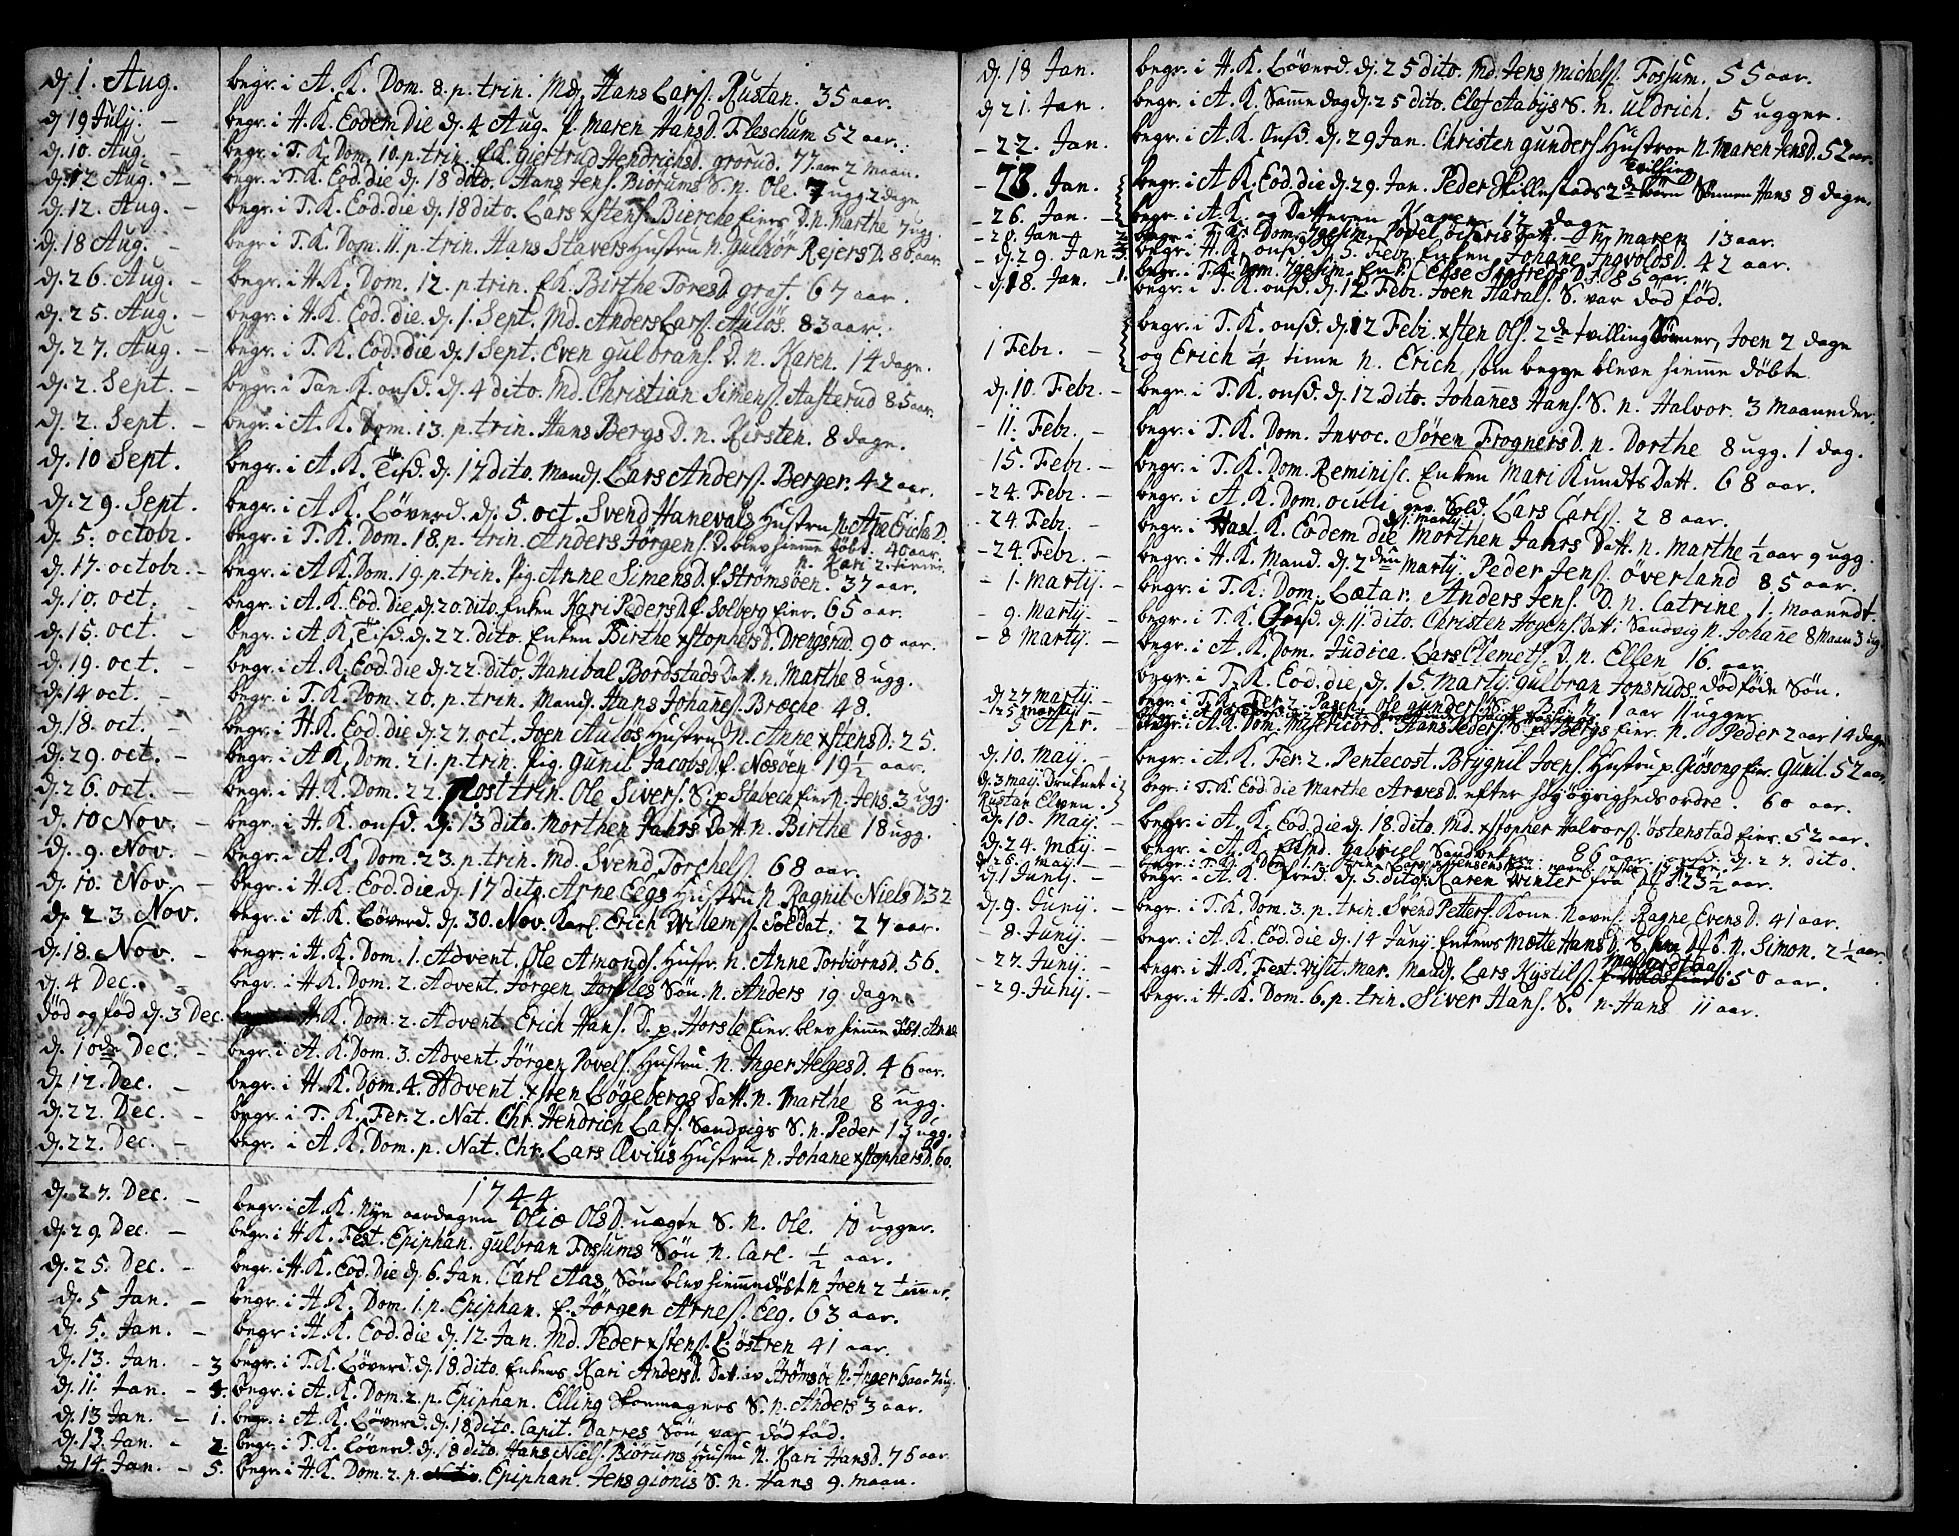 dj. 1. Aug. begr. i A. K. Dom. 8. p. trin. Md. Hans Lars. Rustan. 35 aar.
dj 19 Julij. – begr. i H. K. Eodem die dj. 4 Aug. f. maren Hans D. Fleschum 52 aar.
dj. 10. Aug. – begr. i T. K. Dom. 10. p. trin. Giertrud Hendrichs D. grorud. 77 aar 2 Maan.
dj. 12 Aug. – begr. i T. K. Eod. die dj. 18 dito. Hans Jens. Biörums S. n. Ole. 7 ugg. 2 dage
dj. 12. Aug. – begr. i T. K. Eod. die dj. 18 dito. Lars xstens. Bierche Eiers D. n. Marthe 7 ugg.
dj. 18 Aug. – begr. i T. K. Dom. 11. p. trin. Hans Stavers Hustru n. Gulbiör Rejers D. 80. aar
dj. 26. Aug. – begr. i H. K. Dom. 12. p. trin. Birthe Tores D. graf. 67 aar.
dj. 25. Aug. – begr. i H. K. Eod. die. dj. 1. Sept. Md. Anders Lars. Auløs. 83 aar.
dj. 27. Aug. – begr. i T. K. Eod. die dj. 1 Sept. Even gulbrans. D. n. Karen. 14 dage.
dj. 2. Sept. – begr. i Tan. K. onsd. dj. 4 dito. Md. Christian Simens. Aasterud 85 aar.
dj. 2. Sept. – begr. i A. K. Dom. 13. p. trin. Hans Bergs D. n. Kirsten. 8 dage.
dj. 10 Sept. begr. i A. K. Tisd. dj. 17 dito. Mandj. Lars Anders. Berger. 42 aar.
dj. 29. Sept. begr. i A. K. Löverd. dj. 5. oct. Svend Hanevals Hustru n. Anne Erichs D. 40 aar.
dj. 5. octobr. – begr. i T. K. Dom. 18. p. trin. Anders Jörgens. D. blev hiemme döbt. n. Kari 2 timer.
dj. 17. octobr. – begr. i A. K. Dom. 19. p. trin. Pig. Anne Simens D. f. Strömsöen. 37 aar.
dj. 10. oct. begr. i A. K. Eod. Die, dj. 20. dito. Enken Kari Peders D. f. Solberg Eier. 65 aar.
dj. 15. oct. – begr. i A. K. Tisd. dj. 22. dito. Enken Birthe xstophers D. Drengsrud. 90 aar.
dj. 19. oct. – begr. i A. K. Eod. die dj. 22. dito. Hanibal Bordstads Datt. n. Marthe 8 ugg.
dj. 14 oct. – begr. i T. K. Dom. 20. p. trin. Mandj. Hans Johannes. Bræche 48.
dj. 18. oct. – begr. i H. K. Eod. die dj. 27. oct. Joen Auløs Hustru n. Anne xstens D. 25.
dj. 29. oct. – begr. i A. K. Dom. 21. p. trin. Pig. Gunil Jacobs D. f. Nesöen 19½ aar.
dj. 26. oct. – begr. i H. K. Dom. 22. post trin. Ole Sivers. S. p. Stabech Eier n. Jens. 3 ugg.
dj. 10 Nov. – begr. i H. K. onsd. dj. 13 dito. Morthen Jahrs Datt. n. Birthe 18 ugg.
dj. 9. Nov. – begr. i A. K. Dom. 23. p. trin. Md. Svend Torchels. 68 aar.
dj. 10. Nov. – begr. i H. K. Eod. die dj. 17 dito. Arne Eegs Hustru n. Ragnil Niels D. 32
dj. 23. Nov. begr. i A. K. Löverd. dj. 30. Nov. Karl. Erich Willems. Soldat. 27 aar.
dj. 18. Nov. – begr. i H. K. Dom. 1. Advent. Ole Amonds. Hustr. n. Anne Torbiörns D. 56.
dj. 4 Dec. – begr. i H. K. Dom. 2. Advent. Jörgen Horsles Søn. n. Anders 19 dage
död og fød dj. 3 Dec. H. K. Dom. 2. Advent. Erich Hans. D. p. Horsle Eier. blev hiemme döbt. Anne
dj. 10de Dec. – begr. i A. K. Dom. 3. Advent. Jörgen Povels. Hustru. n. Inger Helges D. 46 aar.
dj. 12. Dec. – begr. i H. K. Dom. 4. Advent. xsten Lögebergs Datt. n. Marthe 8 ugg.
dj. 22. Dec. – begr. i T. K. Fer. 2. Nat. Chr. Hendrich Lars. Sandvigs S. n. Peder 13 ugg.
dj. 22. Dec. – begr. i A. K. Dom. p. Nat. Chr. Lars Qvius Hustru n. Johane xstophers D. 60.
1744
dj. 27. Dec. – begr. i A. K. Nye aarsdagen Olia Ols D. uægte S. n. Ole. 10 ugger.
dj. 29. Dec. – begr. i H. K. Fest. Epiphan. Gulbran Fossums Søn n. Carl. ½ aar.
dj. 25. Dec. – begr. i H. K. Eod. Die dj. 6. Jan. Carl Aas Søn blev hiemmedöbt n. Joen 2 timer.
dj. 5 Jan. – begr. i H. K. Dom. 1. p. Epiphan. f. Jörgen Arnes. Eeg. 63 aar.
dj. 5. Jan. – begr. i H. K. Eod. die dj. 12. Jan. Md. Peder xstens. Löstren 41 aar.
dj. 13. Jan. – 3 begr. i T. K. Löverd. dj. 18. dito. Enkens Kari Anders D. Datt. av Strömsöe n. Inger 6 aar
dj. 11. Jan. – 4. begr. i A. K. Dom. 2. p. Epiphan. Elling Skomagers S. n. Anders 3 aar.
dj. 13 Jan. – 1. begr. i A. K. Löverd. dj. 18 dito. Capit. Darres Søn var dödfød.
dj. 13. Jan. – 2. begr. i T. K. Löverd. dj. 18 dito. Hans Niels. Biörums Hustru n. Kari Hans D. 75 aar.
dj. 14. Jan. – 5. begr. i H. K. Dom. 2. p. Epiphan. Jens giönis S. n. Hans 9. maan.
dj. 18 Jan. begr. i H. K. Löverd. dj. 25 dito. Md. Jens Michels. Fossum. 55 aar.
dj 21. Jan. begr. i A. K. Samme dag dj. 25 dito. Elef Aabys S. n. Uldrich. 5 ugger.
– 22. Jan. begr. i A. K. onsd. dj. 29 Jan. Christen gunders Hustroe n. Maren Jens D. 52 aar.
– 23. Jan. begr. i A K. Eod. die dj. 29. Jan. Peder Hillestads 2de tvilling børn Sønnen Hans 8 dage.
– 26. Jan. – begr. i A. K. og Datteren Karen 12 dage
– 20. Jan – 2 begr. i T. K. Dom. 7gesim. Povel Datt. n. maren 13 aar.
– dj. 29. Jan. 3. begr. i H. K. onsd. dj. 5. Febr. Enken Johane Ingvolds D. 42 aar.
– dj. 18. Jan. – 1. begr. i T. K. Dom. 7gesim. Enk. Else Sigfreds D. 85 aar.
begr. i T. K. onsd. dj. 12. Febr. Joen Harals. S. var död föd.
1 Febr. – begr. i T. K. onsd. dj. 12 Febr. xsten Ols. 2de tvilling Sønner, Joen 2 dage
og Erich ¼ time n. Erich, som begge bleve hiemme döbte.
dj. 10. Febr. – begr. i T. K. onsd. dj. 12. dito. Johannes Hans. S. n. Halvor. 3 Maaneder.
– 11. Febr. – begr. i T. K. Dom. Invoc. Søren Frogners D. n. Dorthe 8 ugg. 1 dag.
15. Febr. – begr. i T. K. Dom. Reminisc. Enken Mari Knudts Datt. 68 aar.
– 24. Febr. – begr. i A. K. Dom. oculi. Sold. Lars Carls. 28 aar.
– 24. Febr. – begr. i K. Eodem die dj. 1. Martij Morthen Jahrs Datt. n. Marthe ½ aar 9 ugg.
– 24. Febr. – begr. i H. K. Mand. dj. 2den Martij. Peder Jens. överland 85 aar.
– 1. Martij. – begr. i T. K. Dom. Lætar. Anders Jens. D. n. Catrine, 1. maanedt.
– 9. Martij. – begr. i T. K. onsd. dj 11. dito. Christen Datt. i Sandvig n. Johanne 8 Maan 3 ug.
– 8 Martij. – begr. i A. K. Dom. Judica. Lars Clemets. D. n. Ellen 16. aar.
begr. i T. K. Eod. die, dj. 15. Martij. gulbran Jonsruds dødføde Søn.
dj 27 martij – begr. i T. K. Fer. 2. Pasch. ole gunders. n. 1 aar 11 ugger.
– 25 martij –
5 Apr. – begr. i A. K. Dom. Misericord. Hans Peders. S. p. Bergs Eier. n. Peder 2 aar 14 dage
dj. 10. Maij. – begr. i A. K. Fer. 2. Pentecost. Brÿgnil Joens. Hustru p. Giösong Eier. Gunil. 52 aar
dj. 3 maij. druknet i Rustan Elven. begr. i T. K. Eod. die Marthe Arves D. efter höyövrigheds ordre. 60 aar.
dj. 10. Maij. – begr. i A. K. Eod. die dj. 18. dito. Md. xstopher Halvors. östenstad Eier. 52 aar.
dj. 24. maij. – begr. i A. K. Gabriel Sandbek 86 aar. onsd. dj. 27. dito
dj 26. maij. – begr. i T. K. Dom. 1. p. trin.
dj. 1 Junij. – begr. i A. K. fred. dj. 5. dito. Karen Winter fra 23½ aar.
dj. 9. Junij. – begr. i T. K. Dom. 3. p. trin. Svend Petters. Kone navnl. Ragne Evens D. 41 aar.
– 8. Junij. – begr. i A. K. Eod. die dj. 14 Junij Enkens Mætte Hans D. S. n. Simon. 2½ aar
– 27. Junij. – begr. i H. K. Fest. Visit. Mar. Mandj. Lars Kystils. 50 aar.
– 29. Junij. – begr. i H. K. Dom. 6. p. trin. Siver Hans. S. n. Hans 11 aar.